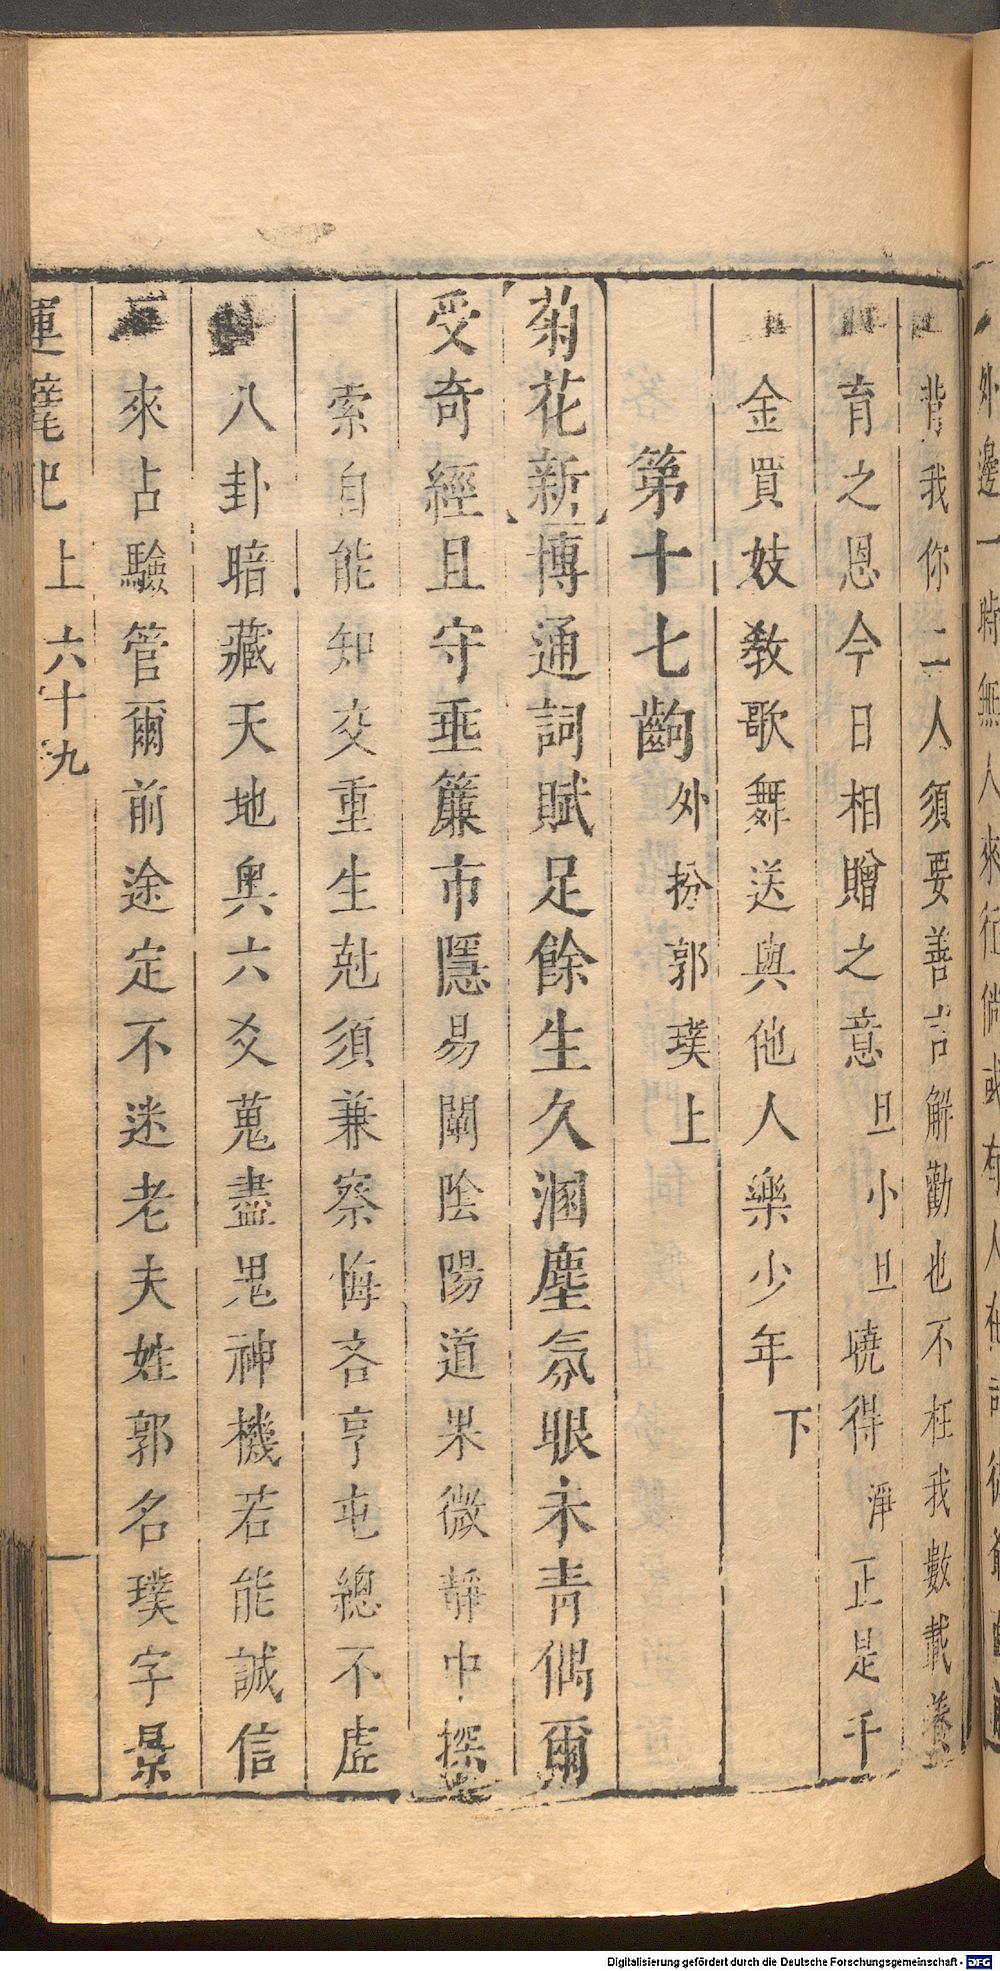 外邊一時無人來行倘或有人在
背我你二人須要善言解勸也不枉我數載養
育之恩今日相贈之意旦小旦曉得淨正是千
金買妓教歌舞送與他人樂少年下
第十七齣外扮郭璞上
菊花新博通詞賦足餘生久溷塵氛眼未青偶爾
受奇經且守垂簾市隱易闡陰陽道果微靜中探
索自能知交重生尅須兼察悔吝亨屯總不虛
八卦暗藏天地奥六爻蒐盡鬼神機若能誠信
來占驗管爾前途定不迷老夫姓郭名璞字景
運甓記上六十九
Digitalisierung gefördert durch die Deutsche Forschungsgemeinschaft - DFG